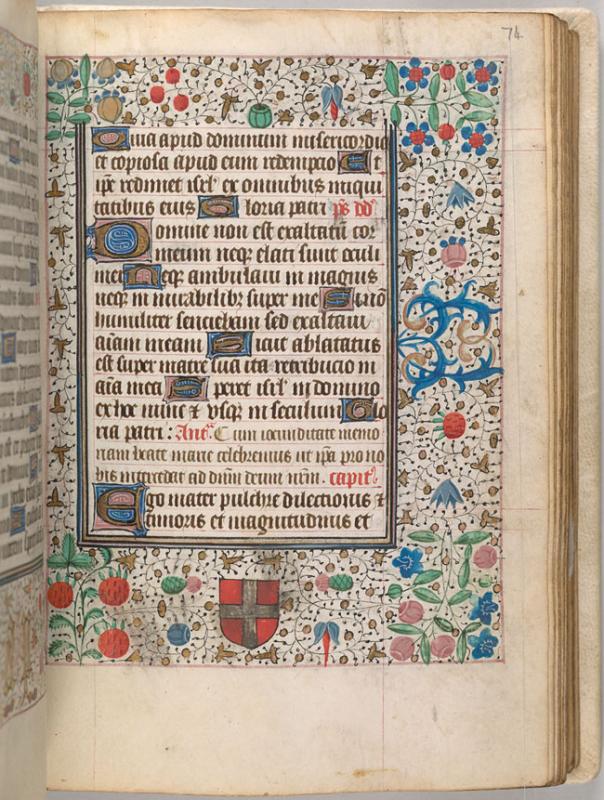 74
Quia apud dominum misericordia
et copiosa apud eum redempcio Et
ipe redimet isrl' ex omnibus iniqui
tatibus eius Gloria patri ps dd'
Domine non est exaltatu cor
meum neq elati sunt oculi
mei Neq ambulaui in magnis
neq in mirabilib super me Si no
humiliter senciebam sed exaltaui
aiam meam Sicut ablatatus
est super matre sua ita retribucio in
aia mea Speret isrl' in domino
ex hoc nunc & vsq in seculum Glo
ria patri : Ant' Cum iocunditate memo
riam beate marie celebremus ut ipa pro no
bis intercedat ad dnm deum nrm . capit'
Ego mater pulchre dilectionis &
timoris et magnitudinis et